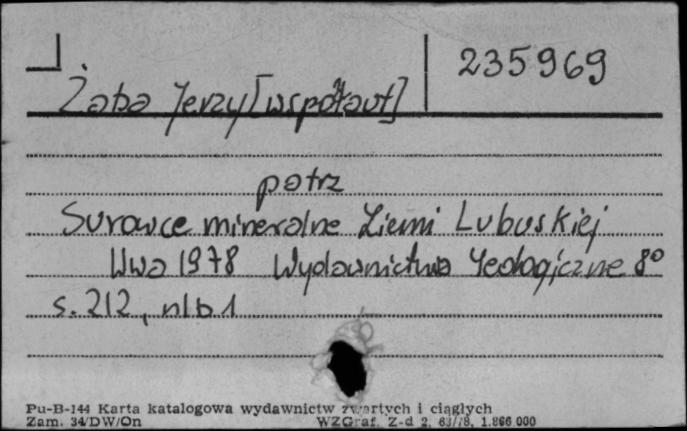 235969
Żaba Jerzy [współaut]
patrz
Surowce mineralne Ziemi Lubuskiej
Wwa 1978 Wydawnictwa Geologiczne 8°
s. 212, nlb 1
Pu-B-144 Karta katalogowa wydawnictw zwartych i ciągłych
Zam. 34/DW/On WZGraf. Z-d 2, 63/78, 1.866.000